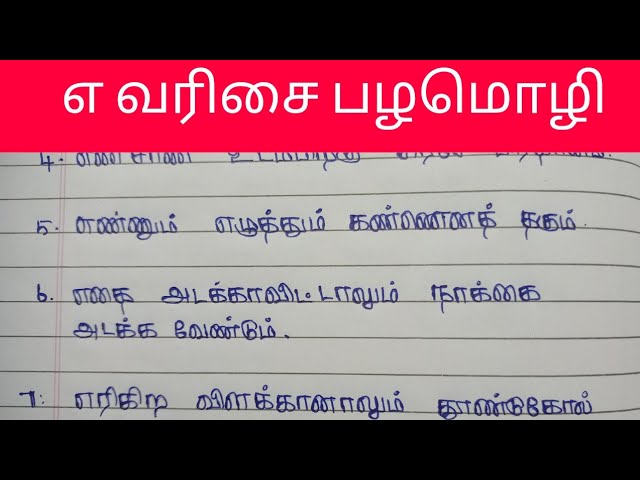 எ வரிசை பழமொழி
4. எண்சாண் உடம்பிற்கு
5. எண்ணும் எழுத்தும் கண்ணெனத் தகும்.
6. எதை அடக்காவிட்டாலும் நாக்கை
அடக்க வேண்டும்.
7. எரிகிற விளக்கானாலும் தூண்டுகோல்